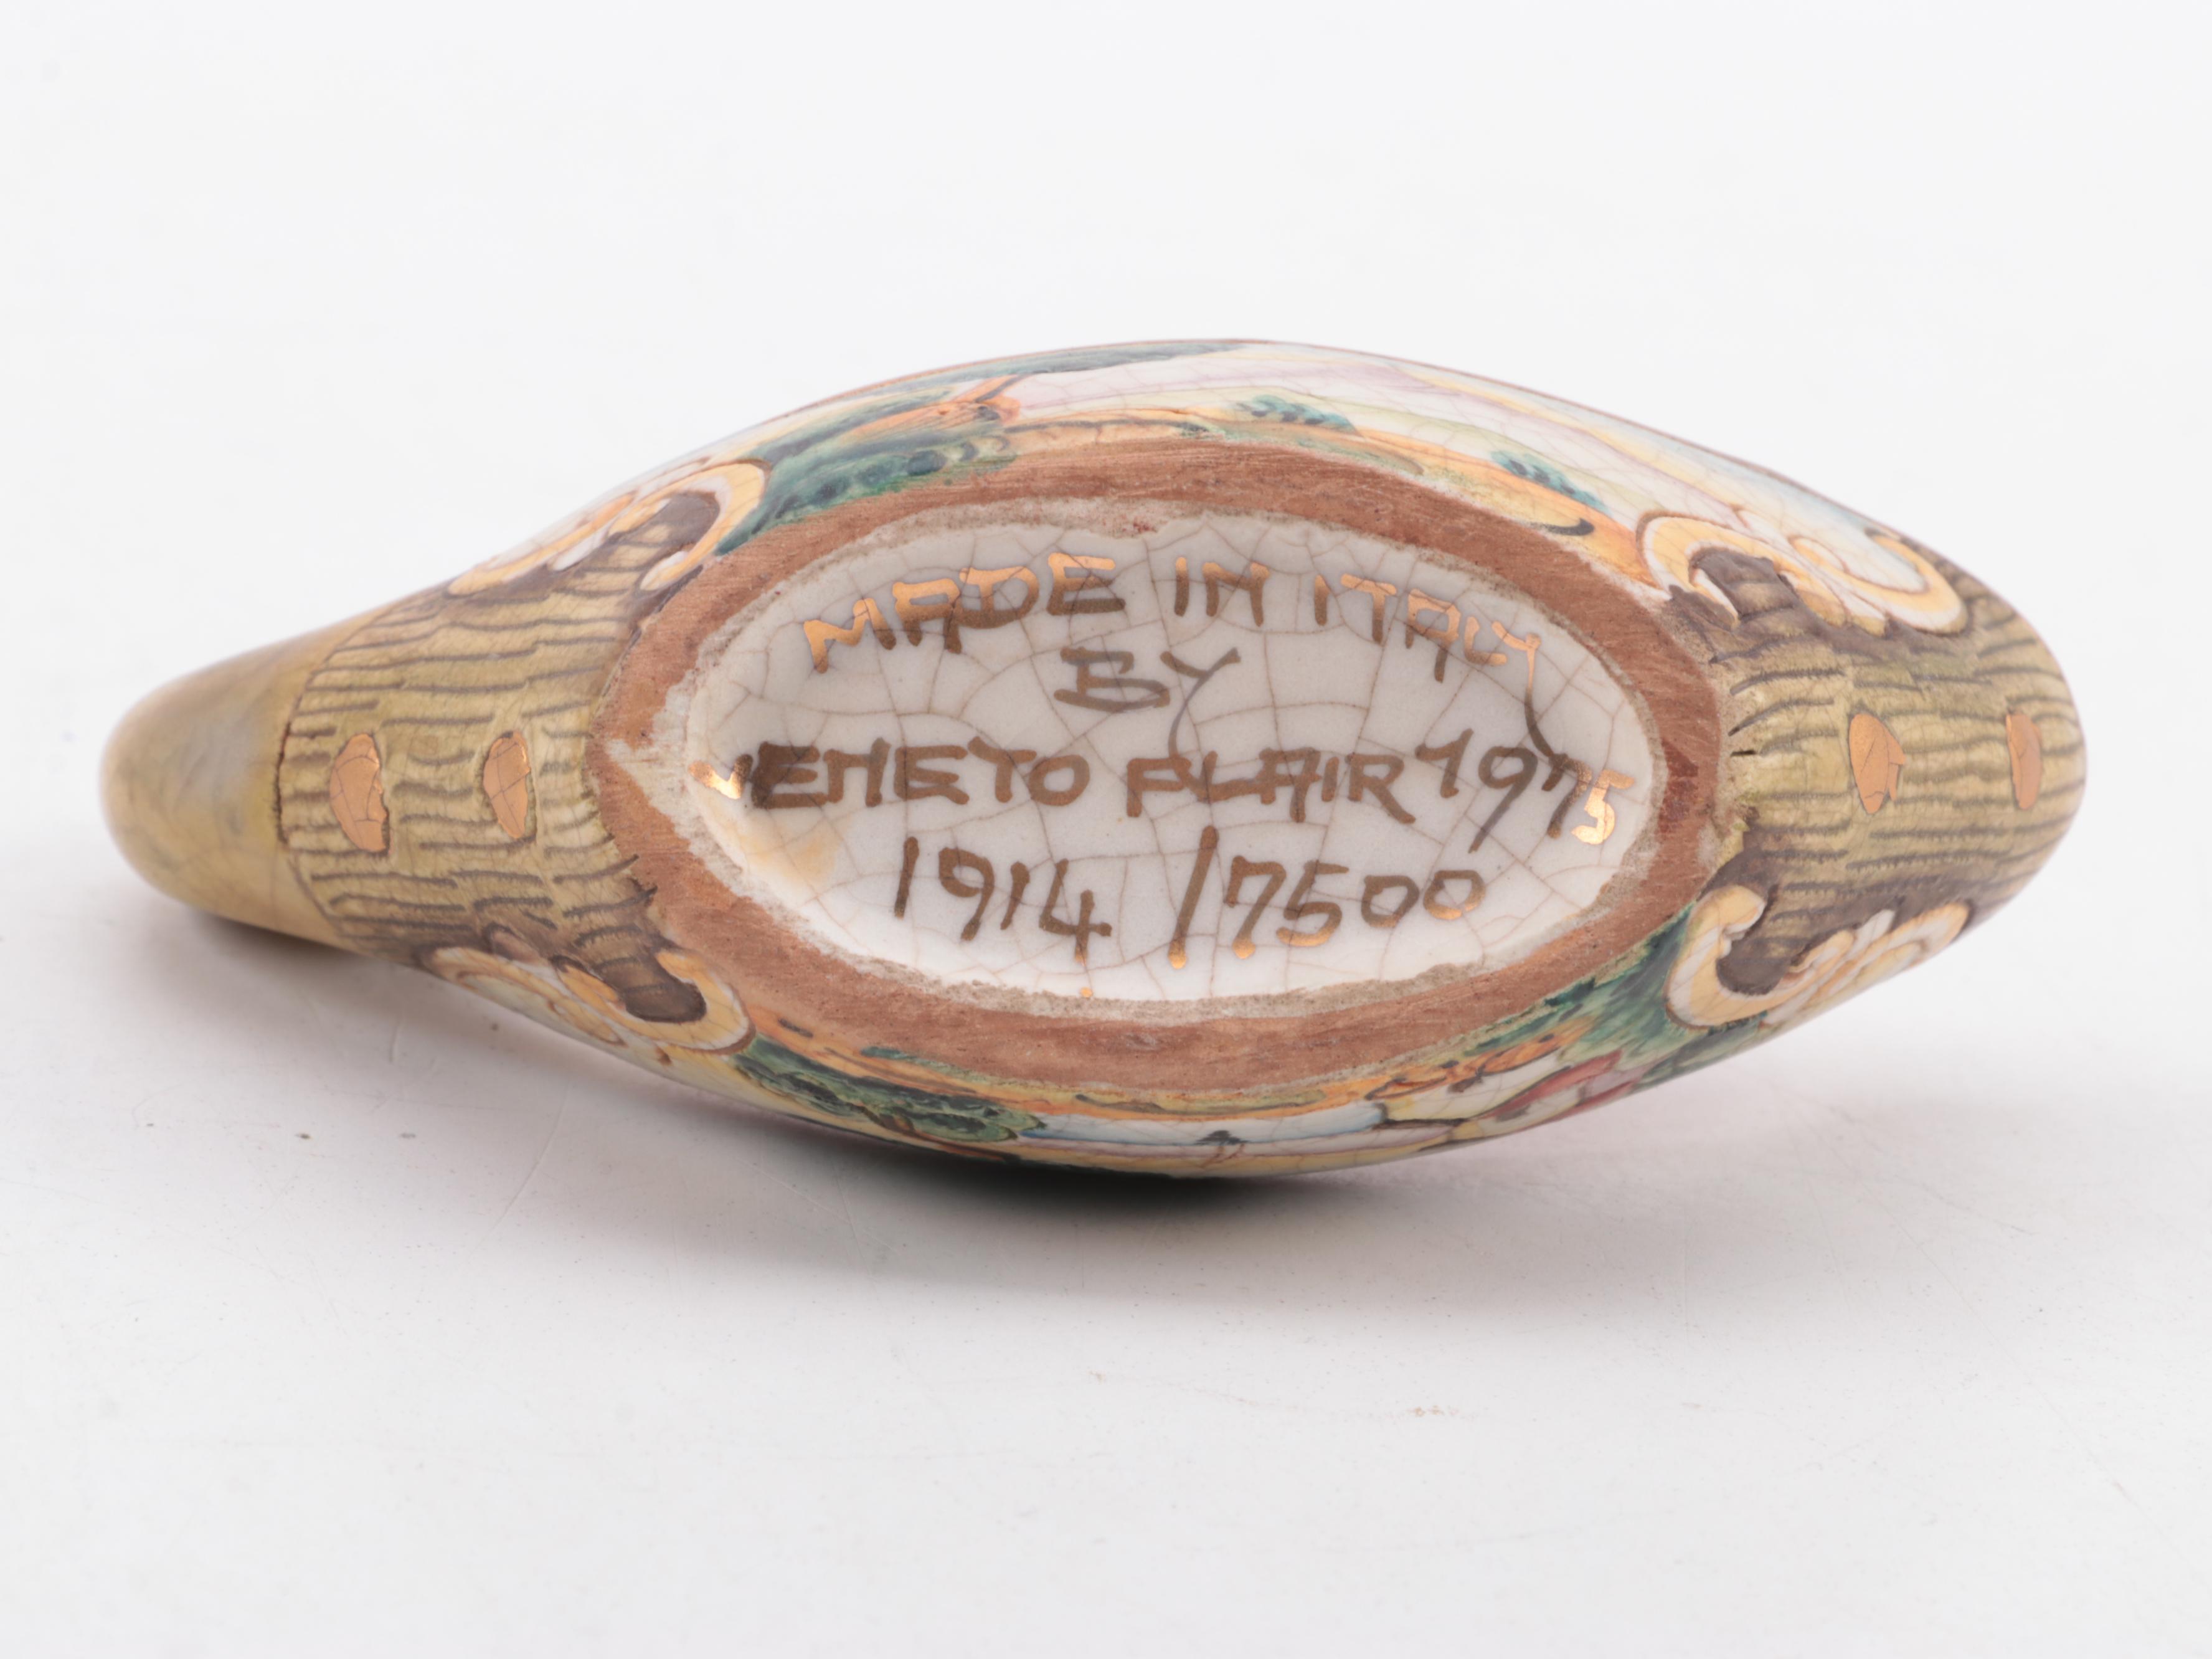 MADE IN ITALY
BY
VENETO FLAIR 1975
1914 /7500